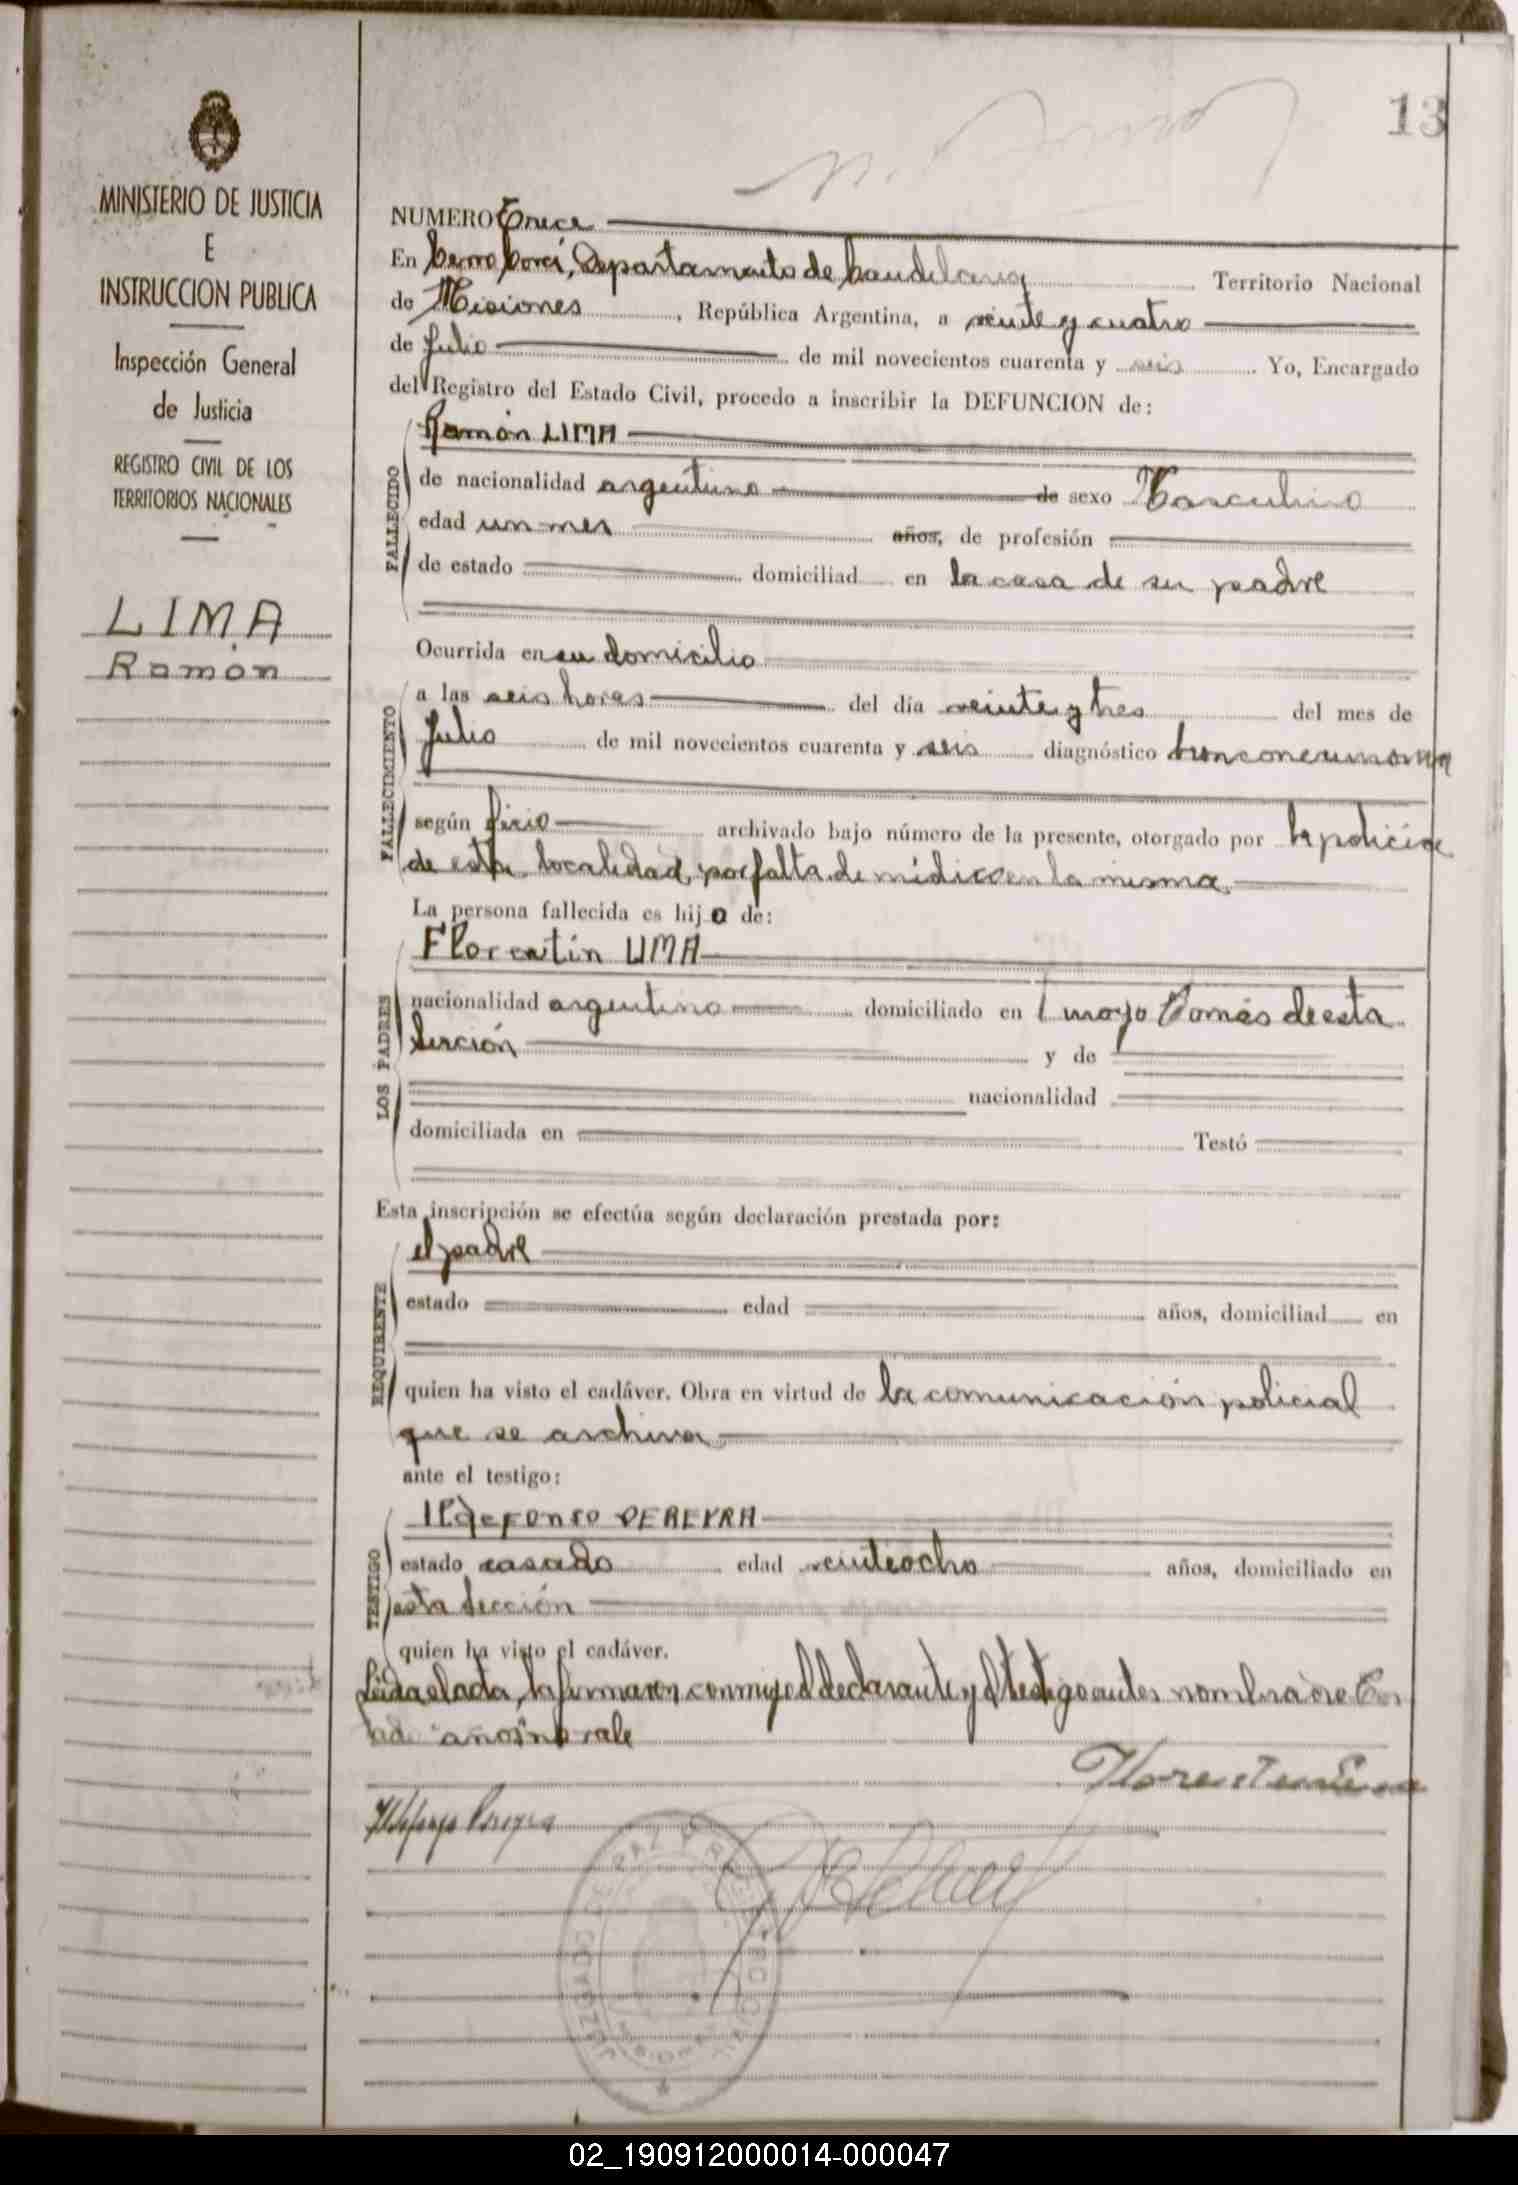 13
MINISTERIO DE JUSTICIA
E
INSTRUCCION PUBLICA
Inspección General
de Justicia
REGISTRO CIVIL DE LOS
TERRITORIOS NACIONALES
LIMA
Ramón
NUMERO Trece
En Cerro Corá, Departamento de Candelaria Territorio Nacional
de Misiones, República Argentina, a veinte y cuatro
de Julio de mil novecientos cuarenta y seis Yo, Encargado
del Registro del Estado Civil, procedo a inscribir la DEFUNCION de:
Ramón LIMA
FALLECIDO
de nacionalidad argentino de sexo Masculino
edad un mes años, de profesión
de estado domiciliad en la casa de su padre
Ocurrida en su domicilio
FALLECIMIENTO
a las seis horas del día veinte y tres del mes de
Julio de mil novecientos cuarenta y seis diagnóstico bronconeumonia
según archivado bajo número de la presente, otorgado por la policia
de esta localidad, por falta de médico en la misma
La persona fallecida es hijo de:
LOS PADRES
Florentin LIMA
nacionalidad argentino domiciliado en Tomás de esta
Sección y de
nacionalidad
domiciliada en Testó
Esta inscripción se efectúa según declaración prestada por:
REQUIRENTE
el padre
estado edad años, domiciliad en
quien ha visto el cadáver. Obra en virtud de la comunicación policial
que se archiva
ante el testigo:
TESTIGO
Ildefonso PEREYRA
estado casado edad veinteocho años, domiciliado en
esta Sección
quien ha visto el cadáver.
Leida el acta, la firmaron conmigo el declarante y el testigo antes nombrado
"años" no vale
Florentin Lima
Ildefonso Pereyra
JUZGADO DE PAZ Y REGISTRO CIVIL
MISIONES
02_190912000014-000047